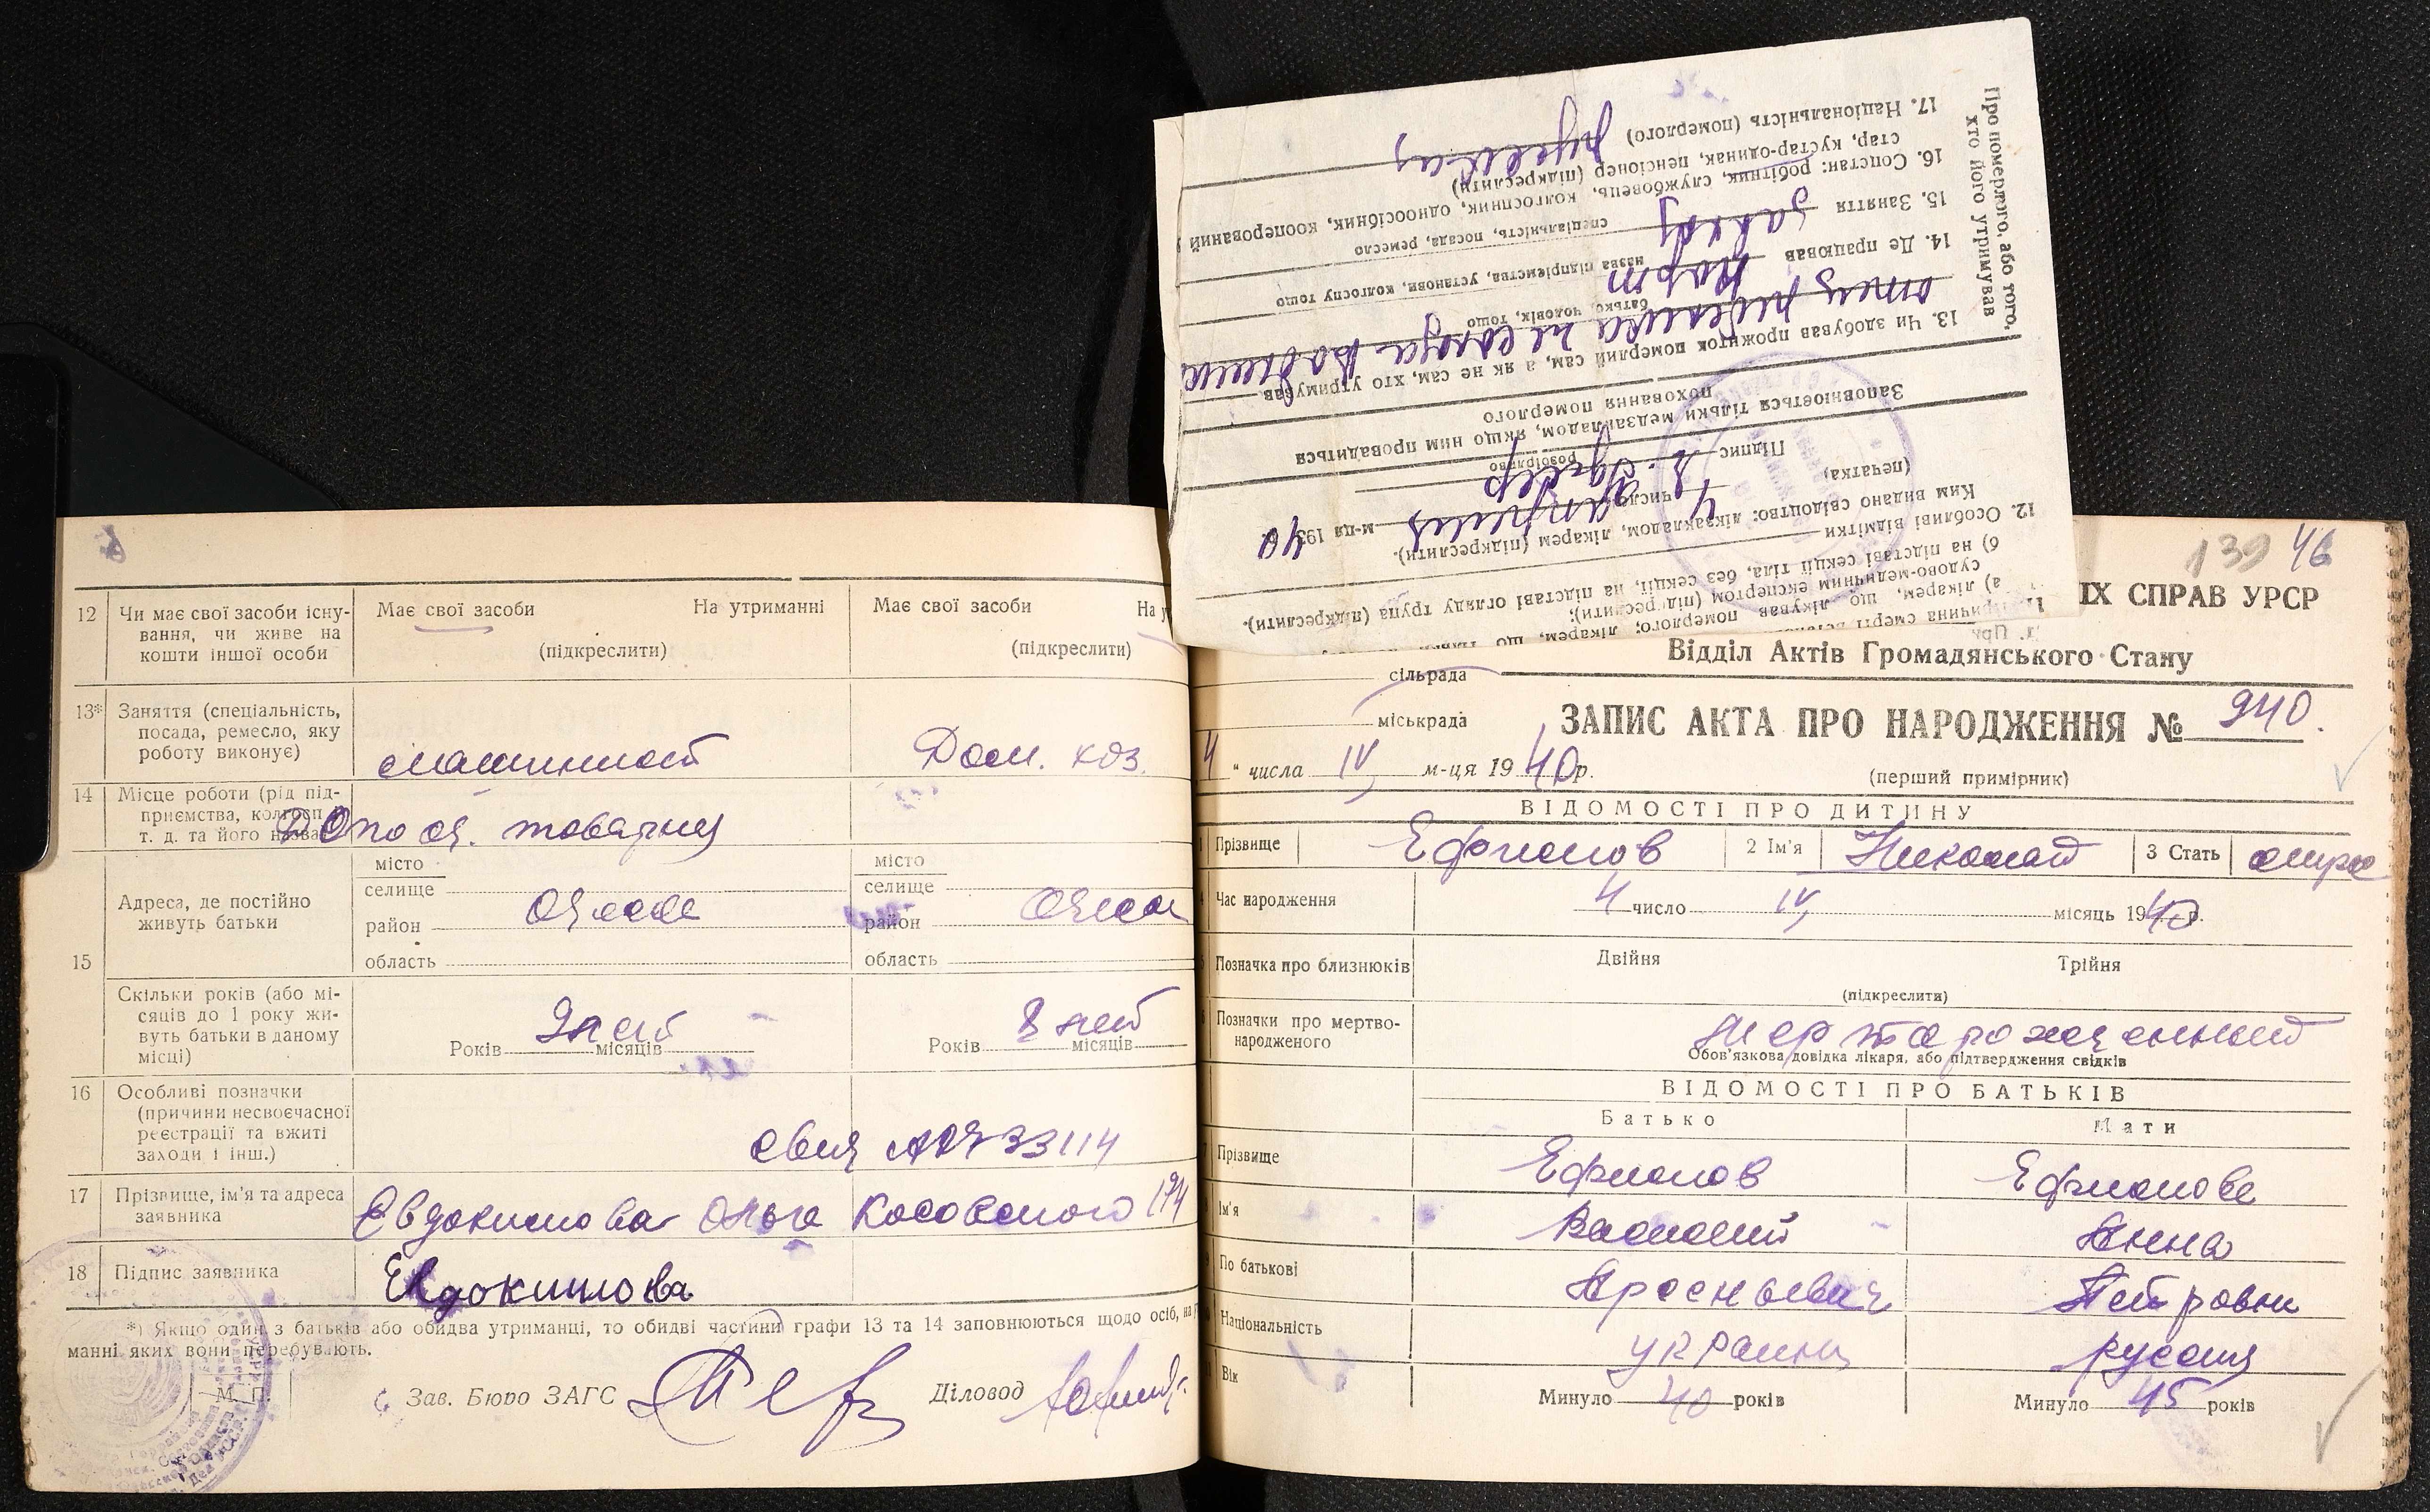 12 Чи має свої засоби існування, чи живе на кошти іншої особи
Має свої засоби На утриманні
(підкреслити)
Має свої засоби На у
(підкреслити)
13* Заняття (спеціальність, посада, ремесло, яку роботу виконує)
машинист
Дом. хоз.
14 Місце роботи (рід підприємства, колгосп і т. д. та його назва)
товарная
15 Адреса, де постійно живуть батьки
місто
селище
район
область
Одесса
місто
селище
район
область
Одесса
Скільки років (або місяців до 1 року живуть батьки в даному місці)
Років місяців
Років 8 лет місяців
16 Особливі позначки (причини несвоєчасної реєстрації та вжиті заходи і інш.)
33114
17 Прізвище, ім'я та адреса заявника
Евдокимова Ольга Косовского 174
18 Підпис заявника
Евдокимова
*) Якщо один з батьків або обидва утриманці, то обидві частини графи 13 та 14 заповнюються щодо осіб, на
манні яких вони перебувають.
М. П.
Зав. Бюро ЗАГС
Діловод
а) лікарем, що лікував померлого; лікарем, що
судово-медичним експертом (підкреслити);
б) на підставі секції тіла, без секції, на підставі огляду трупа (підкреслити).
12. Особливі відмітки
Ким видано свідоцтво: лікзакладом, лікарем (підкреслити).
4 числа апреля м-ця 193 40
(печатка)
Підпис
розбірливо
Заповнюється тільки медзакладом, якщо ним провадиться
поховання померлого
Про померлого, або того,
хто його утримував
13. Чи здобував прожиток померлий сам, а як не сам, хто утримував
отец ребенка
батько, чоловік, тощо
14. Де працював порт
назва підприємства, установи, колгоспу тощо
15. Заняття
спеціальність, посада, ремесло
16. Сопстан: робітник, службовець, колгоспник, одноосібник, кооперований
стар, кустар-одинак, пенсіонер (підкреслити)
17. Національність (померлого) русская
139 46
ІХ СПРАВ УРСР
Відділ Актів Громадянського Стану
сільрада
міськрада
ЗАПИС АКТА ПРО НАРОДЖЕННЯ № 940
4 " числа IV м-ця 1940р.
(перший примірник)
ВІДОМОСТІ ПРО ДИТИНУ
Прізвище Ефимов 2 Ім'я Николай 3 Стать
Час народження 4 число IV місяць 1940 р.
Позначка про близнюків Двійня Трійня
(підкреслити)
Позначки про мертвонародженого
мертворожденный
Обов'язкова довідка лікаря, або підтвердження свідків
ВІДОМОСТІ ПРО БАТЬКІВ
Батько Мати
Прізвище Ефимов Ефимова
Ім'я Василий Анна
По батькові Арсеньевич Петровна
Національність украинц русская
Вік Минуло 40 років Минуло 45 років